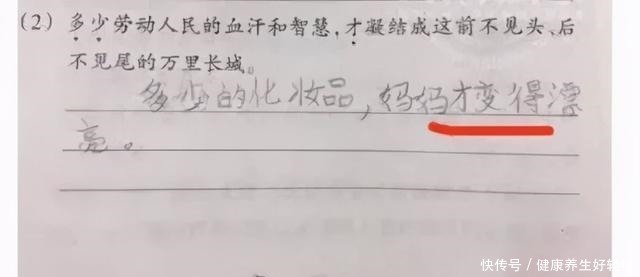 (2) 多少劳动人民的血汗和智慧,才凝结成这前不见头、后
不见尾的万里长城。
多少的化妆品,妈妈才变得漂
亮。
快传号/健康养生好转